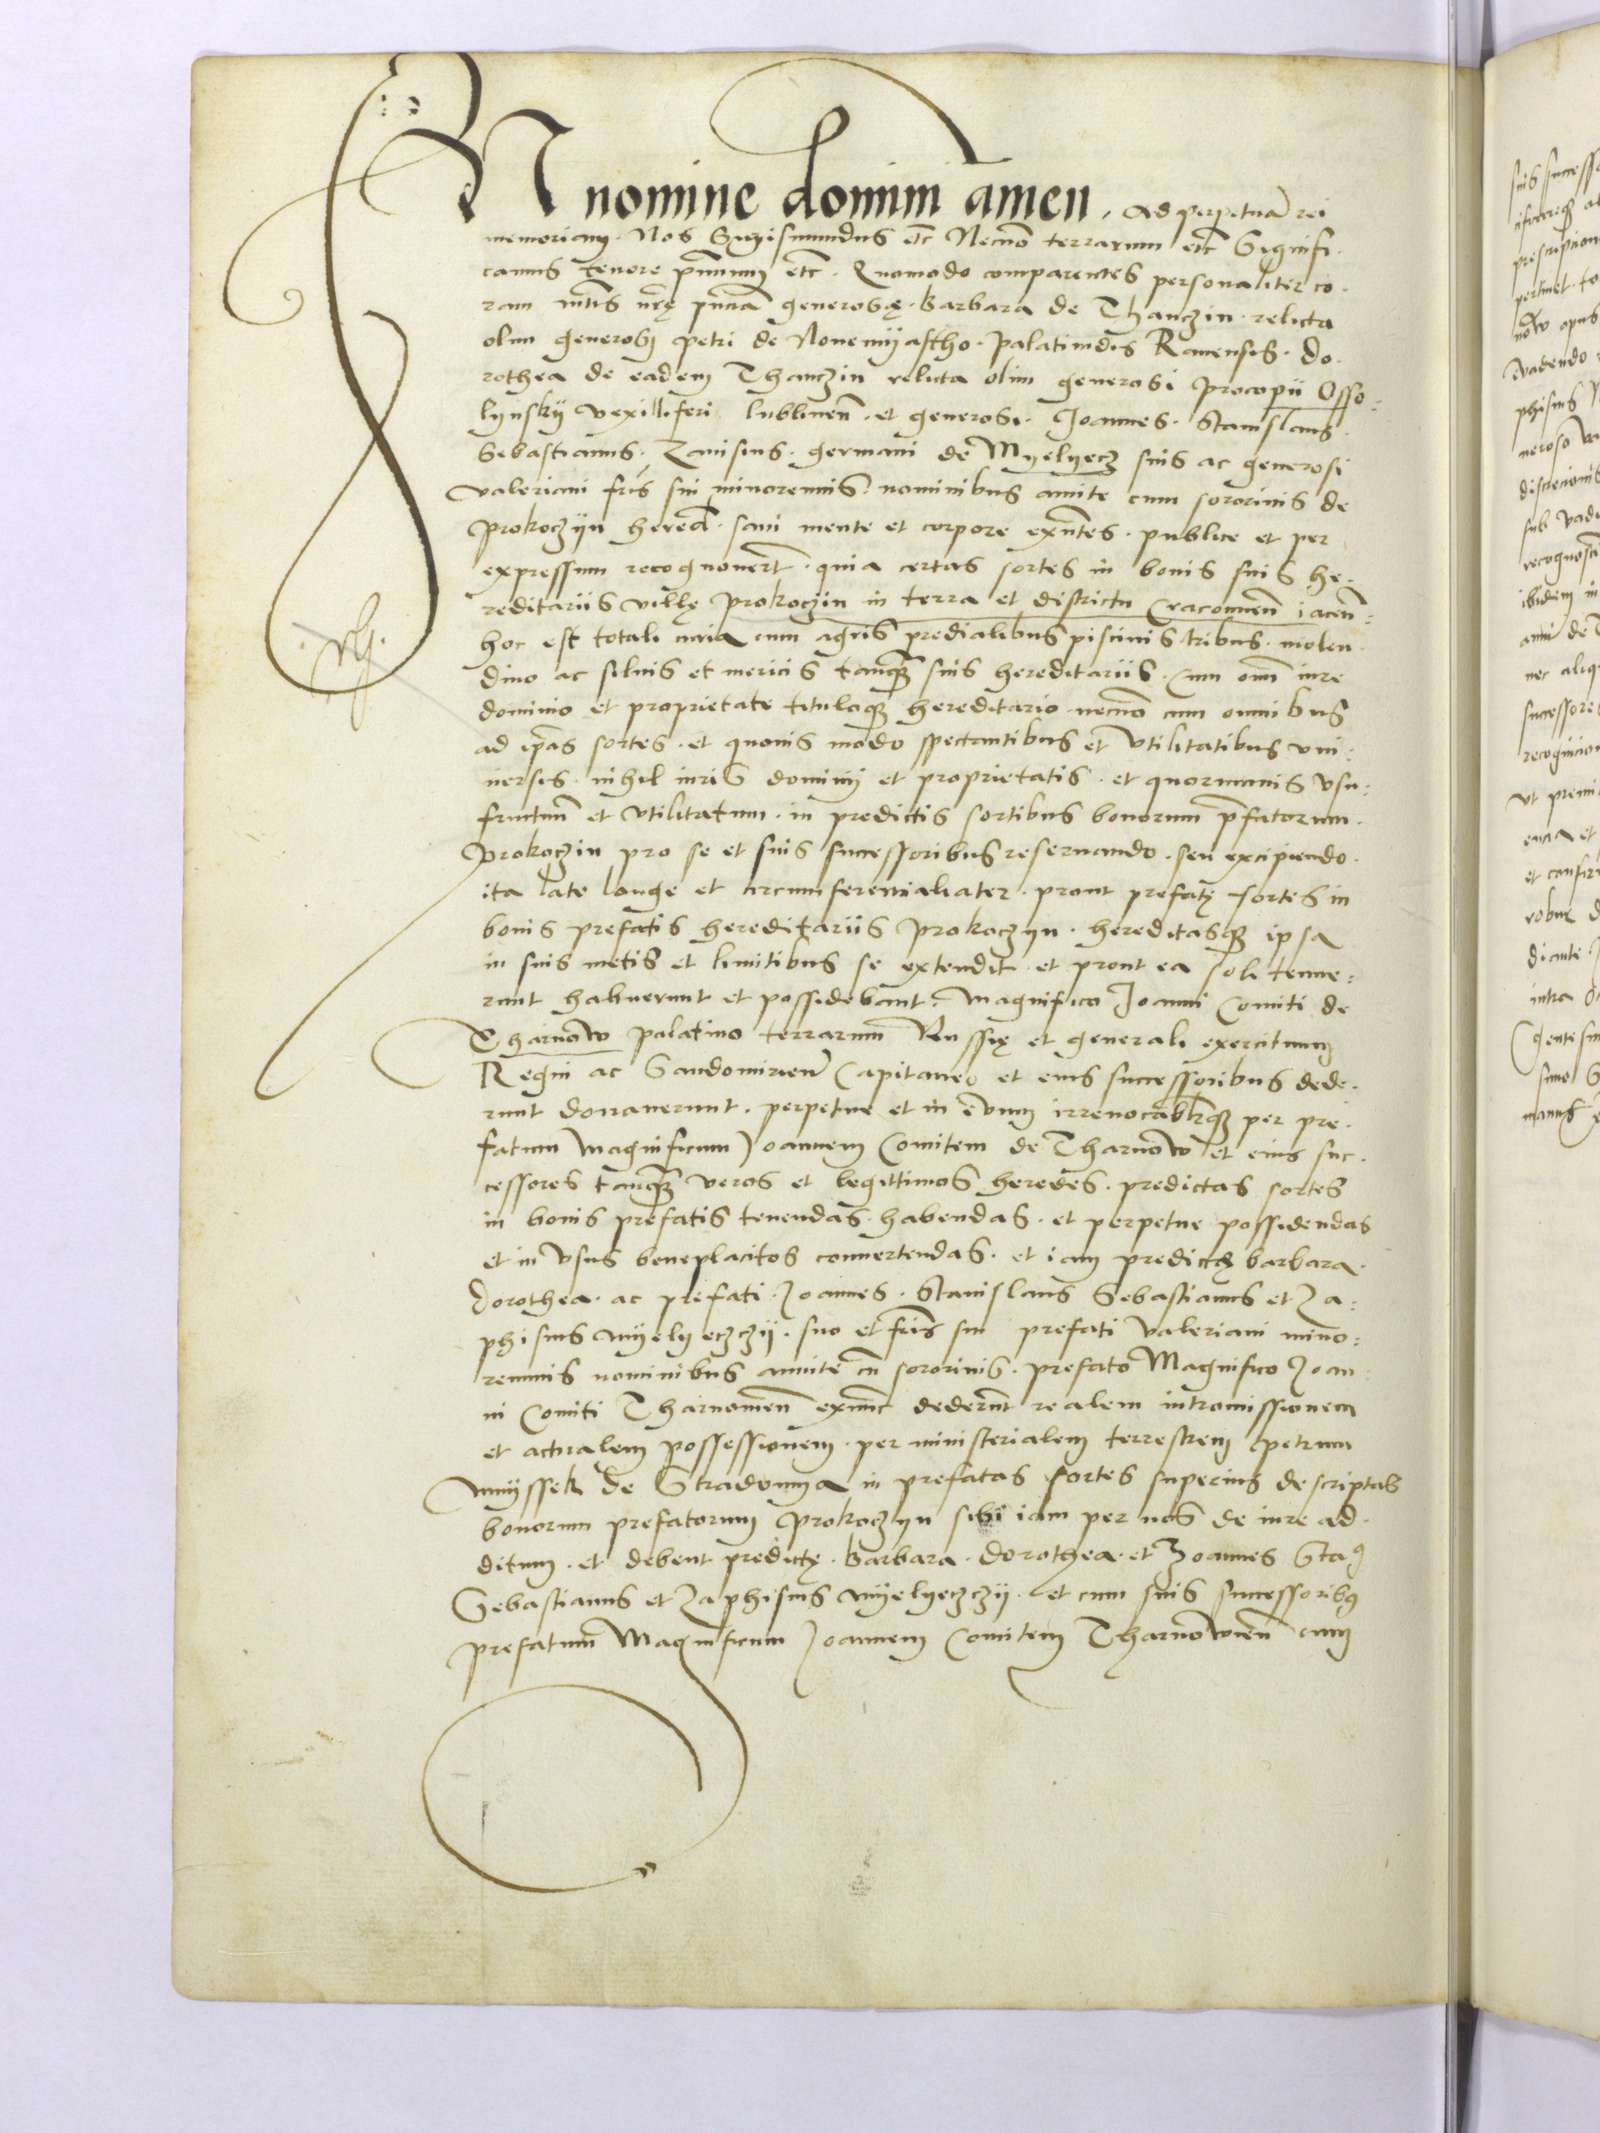 IN nomine domini amen. Ad perpetuā rei
memoriam. Nos Sigismundus etc̄ Necnō terrarum etc̄ Signifi.
camus tenore pn̄tium etc̄. Quomodo comparentes personaliter co.
ram mtis nr̄ę pn̄tia generosę. Barbara de Thanczin. relicta
olim generosi petri de Novemyastho. palatinidis Ravensis. Do.
rothea de eadem Thanczin relicta olim generosi procopii Osso-
lynskÿ vexilliferi lublinen̄. et generosi. Joannes. Stanislaus.
Sebastianus. Zavisius. germani de Myelyecz suis ac generosi
valeriani fr̄is sui minorennis. nominibus aūite cum sororinis de
Prokoczÿn hered̄. sani mente et corpore exn̄tes. publice et per
expressum recognouerūt. quia certas sortes in bonis suis he-
reditariis villę prokoczin in terra et districtu Cracouien̄ iacen̄-
hoc est totali curia cum agris predialibus piscinis tribus. molen.
dino ac siluis et mericis tanq̄ȝ suis hereditariis. Cum omī iure
dominio et proprietate tituloqȝ hereditario necnō cum omnibus
ad ip̄as sortes. et quouis modo spectantibus et vtilitatibus vni:
uersis. nihil iuris dominij et proprietatis. et quorumuis vsu:
fructuū et vtilitatum. in predictis sortibus bonorum p̄fatorum.
Prokoczin pro se et suis successoribus reseruando. seu excipiendo.
ita late longe et circumferentialiater. prout prefatę sortes in
bonis prefatis hereditariis prokoczyn. hereditasqȝ ipsa
in suis metis et limitibus se extendit. et prout ea soli tenue:
runt habuerunt et possidebant. Magnifico Joanni Comiti de
Tharnow palatino terrarum Russię et generali exercituum
Regni ac Sandomirien̄ Capitaneo et eius successoribus dede.
runt donauerunt. perpetue et in ęuum irreuocabilrqȝ per pre.
fatum Magnificum Joannem Comitem de Tharnow et eius suc.
cessores tanq̄ȝ veros et legittimos heredes. predictas sortes
in bonis prefatis tenendas. habendas. et perpetue possidendas
et in vsus beneplacitos conuertendas. et iam predictę barbara.
Dorothea. ac prefati. Joannes. Stanislaus Sebastianus et Za:
phisius myelyeczczÿ. suo et fr̄is sui prefati Valeriani mino:
rennis nominibus aunite cū sororinis. prefato Magnifico Joan
ni Comiti Tharnouien̄ exnūc dederūt realem intromissionem
et actualem possessionem. per ministerialem terrestrem petrum
mÿssek de Stradomya in prefatas sortes superius descriptas
bonorum prefatorum Prokoczyn sibi iam per nos de iure ad.
ditum. et debent predictę. barbara. Dorothea. et Joannes Staꝰ
Sebastianus et Zaphisius mÿelyeczczÿ. et cum suis successoribꝰ
prefatum Magnificum Joannem Comitem Tharnowien̄ cum